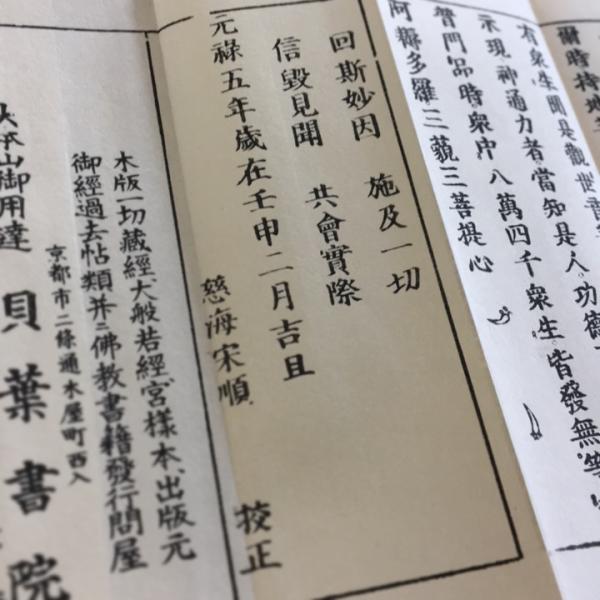 爾時持地菩
有衆生聞是觀世音菩
示現神通力者當知是人功德
普門品時衆中八萬四千衆生皆發無等
阿耨多羅三藐三菩提心
回斯妙因 施及一切
信毀見聞 共會實際
元祿五年歲在壬申二月吉旦
慈海宋順 挍正
木版一切藏經、大般若經、宮樣本、出版元
御經過去帖類并ニ佛教書籍發行問屋
京都市二條通木屋町西入
大本山御用達 貝葉書院